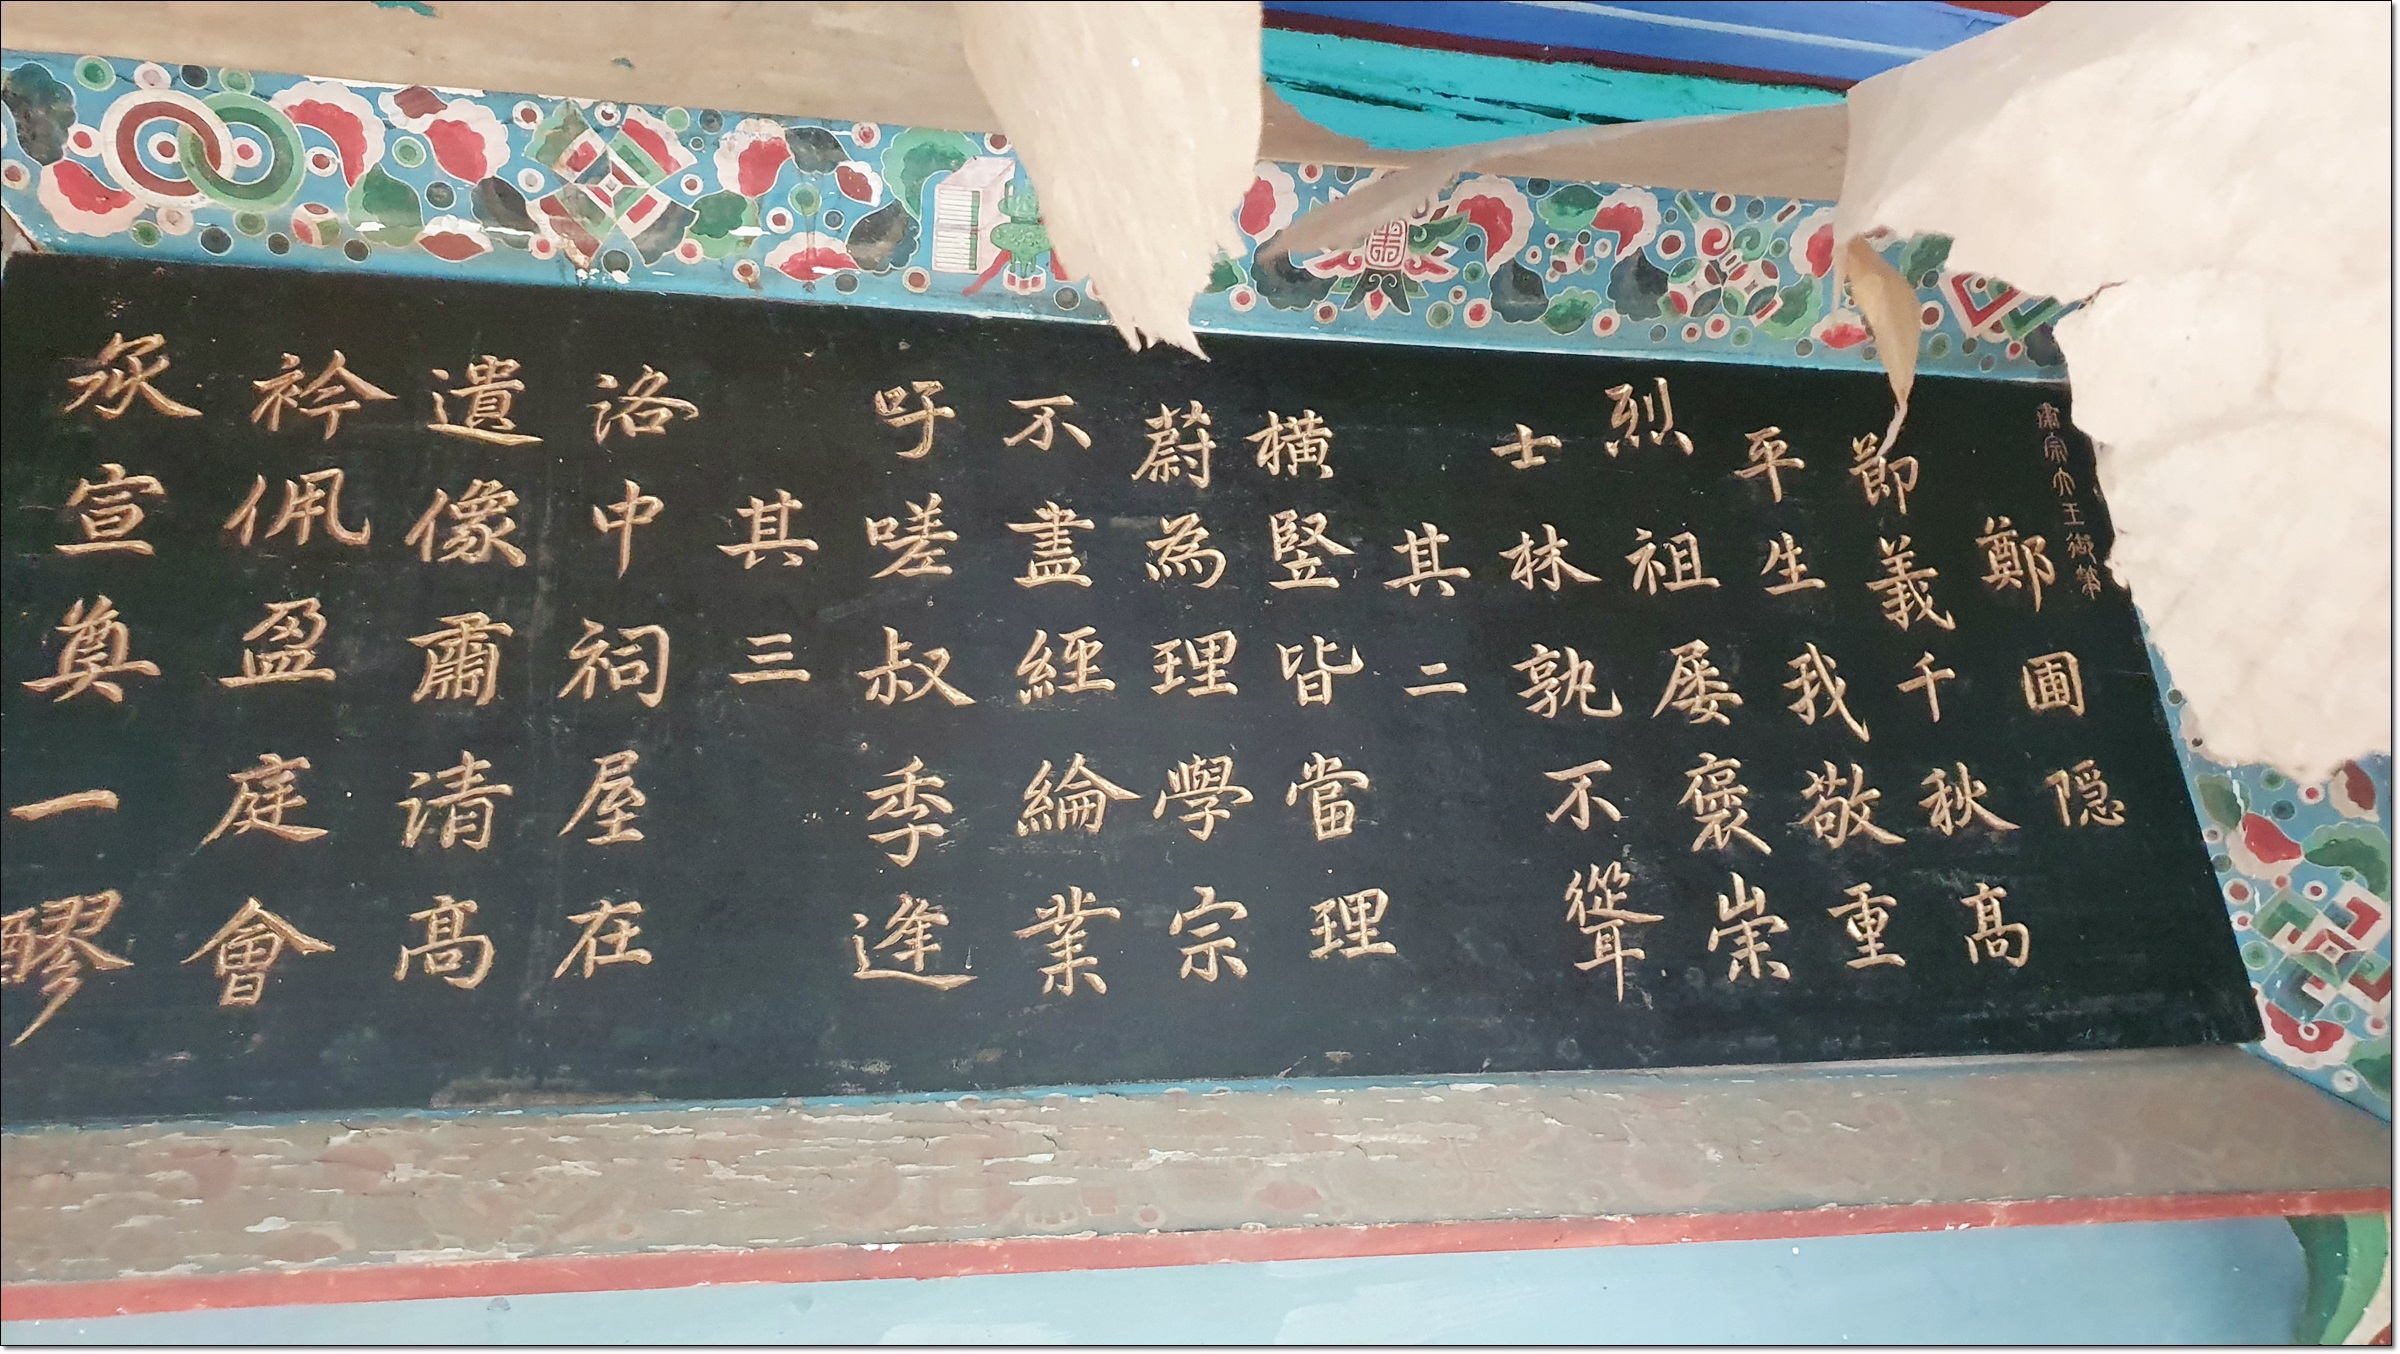 肅宗大王御筆
鄭圃隠
節義千秋高
平生我敬重
烈祖屡褒崇
士林孰不聳
其二
橫竪皆當理
蔚為理學宗
不盡經綸業
吁嗟叔季逢
其三
洛中祠屋在
遺像肅清高
衿佩盈庭會
忝宣奠一醪